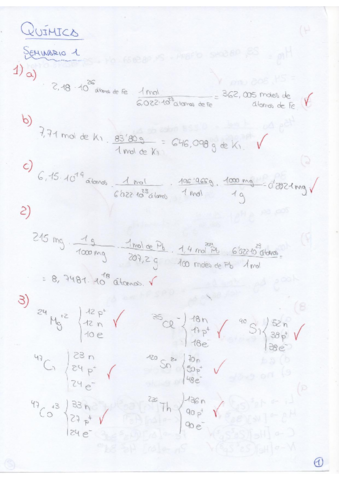 QUÍMICA
SEMINARIO 1
1) a)
2,18 · 10²⁶ átomos de Fe · 1 mol / 6,022·10²³ átomos de Fe = 362,005 moles de átomos de Fe
b)
7,71 mol de Kr · 83,80 g / 1 mol de Kr = 646,098 g de Kr
c)
6,15 · 10¹⁸ átomos · 1 mol / 6,022·10²³ átomos · 1 mol · 1000 mg / 1 g
2)
215 mg · 1 g / 1000 mg · 1 mol de Pb / 207,2 g · 1,4 mol / 100 moles de Pb · 6,022·10²³ / 1 mol
= 8,7481 · 10¹⁸ átomos
3)
²⁴Mg⁺² { 12 p⁺ 12 n 10 e
³⁵Cl⁻ { 18 n 17 p⁺ 18 e
Sr { 52 n 38 p⁺ 38 e
⁴⁷Cr { 23 n 24 p⁺ 24 e⁻
¹²⁰Sn { 70 n 50 p⁺ 48 e⁻
Co⁺³ { 33 n 27 p⁺ 24 e⁻
Th { 136 n 90 p⁺ 90 e
1